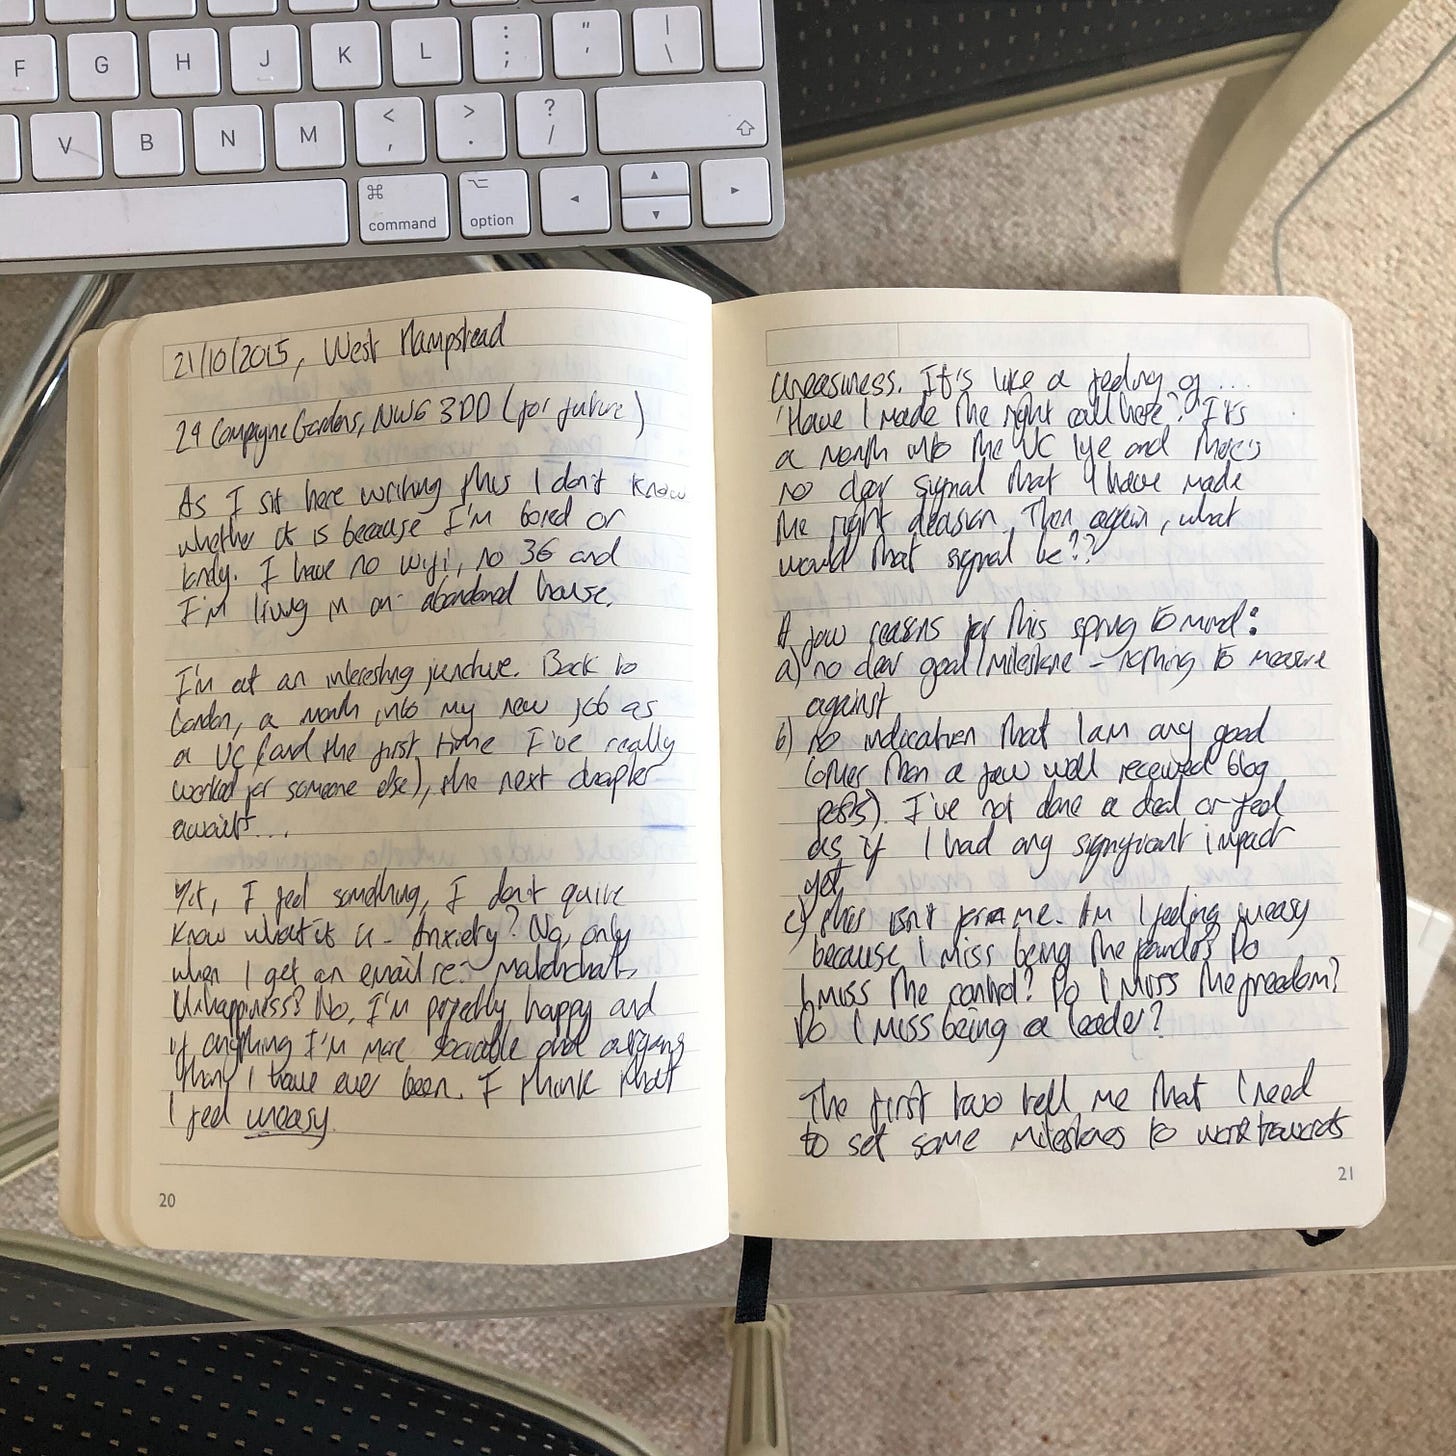 F G H J K L : ; " ' | \
V B N M < , > . ? /
⌘ command ⌥ option
21/10/2015, West Hampstead
29 Compayne Gardens, NW6 3DD (for future)
As I sit here writing this I don't know
whether it is because I'm bored or
lonely. I have no wifi, no 3G and
I'm living in an abandoned house.
I'm at an interesting juncture. Back to
London, a month into my new job as
a VC (and the first time I've really
worked for someone else), the next chapter
awaits...
Yet, I feel something, I don't quite
know what it is - Anxiety? No, only
when I get an email re:
Unhappiness? No, I'm perfectly happy and
if anything I'm more sociable and outgoing
than I have ever been. I think that
I feel uneasy.
20
Uneasiness. It's like a feeling of ...
'Have I made the right call here?' It's
a month into the VC life and there's
no clear signal that I have made
the right decision. Then again, what
would that signal be??
A few reasons for this spring to mind:
a) no clear goal/milestone - nothing to measure
against
b) no indication that I am any good
(other than a few well received blog
posts). I've not done a deal or feel
as if I had any significant impact
yet.
c) this isn't for me. Am I feeling uneasy
because I miss being the founder? Do
I miss the control? Do I miss the freedom?
Do I miss being a leader?
The first two tell me that I need
to set some milestones to work towards
21